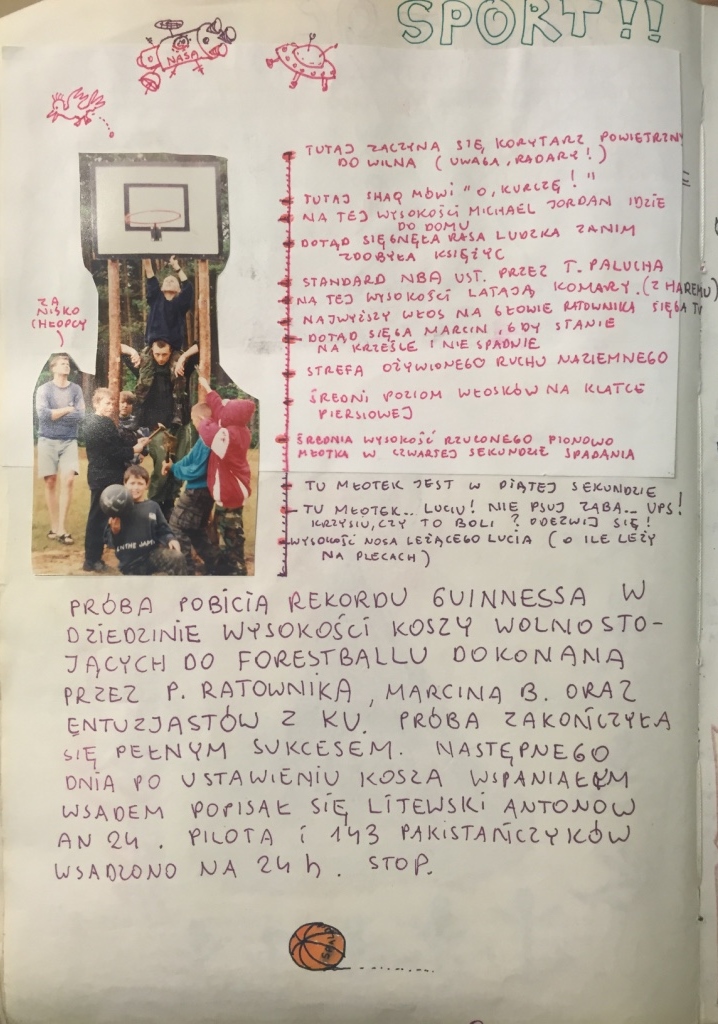 SPORT!!
NASA
TUTAJ ZACZYNA SIĘ KORYTARZ POWIETRZNY
DO WILNA (UWAGA, RADARY!)
TUTAJ SHAQ MÓWI "O, KURCZĘ!"
NA TEJ WYSOKOŚCI MICHAEL JORDAN IDZIE
DO DOMU
DOTĄD SIĘGNĘŁA RASA LUDZKA ZANIM
ZDOBYŁA KSIĘŻYC
STANDARD NBA UST. PRZEZ T. PALUCHA
NA TEJ WYSOKOŚCI LATAJĄ KOMARY. (Z HAREMU)
NAJWYŻSZY WŁOS NA GŁOWIE RATOWNIKA SIĘGA TU
DOTĄD SIĘGA MARCIN, GDY STANIE
NA KRZEŚLE I NIE SPADNIE
STREFA OŻYWIONEGO RUCHU NAZIEMNEGO
ŚREDNI POZIOM WŁOSKÓW NA KLATCE
PIERSIOWEJ
ŚREDNIA WYSOKOŚĆ RZUCONEGO PIONOWO
MŁOTKA W CZWARTEJ SEKUNDZIE SPADANIA
TU MŁOTEK JEST W PIĄTEJ SEKUNDZIE!
TU MŁOTEK... LUCIU! NIE PSUJ ZĄBA... UPS!
KRZYSIU, CZY TO BOLI? ODEZWIJ SIĘ!
WYSOKOŚĆ NOSA LEŻĄCEGO LUCIA (O ILE LEŻY
NA PLECACH)
ZA
NISKO
CHŁOPCY
IN THE JAM
PRÓBA POBICIA REKORDU GUINNESSA W
DZIEDZINIE WYSOKOŚCI KOSZY WOLNOSTO-
JĄCYCH DO FORESTBALLU DOKONANA
PRZEZ P. RATOWNIKA, MARCINA B. ORAZ
ENTUZJASTÓW Z KU. PRÓBA ZAKOŃCZYŁA
SIĘ PEŁNYM SUKCESEM. NASTĘPNEGO
DNIA PO USTAWIENIU KOSZA WSPANIAŁYM
WSADEM POPISAŁ SIĘ LITEWSKI ANTONOW
AN 24. PILOTA i 143 PAKISTAŃCZYKÓW
WSADZONO NA 24 h. STOP.